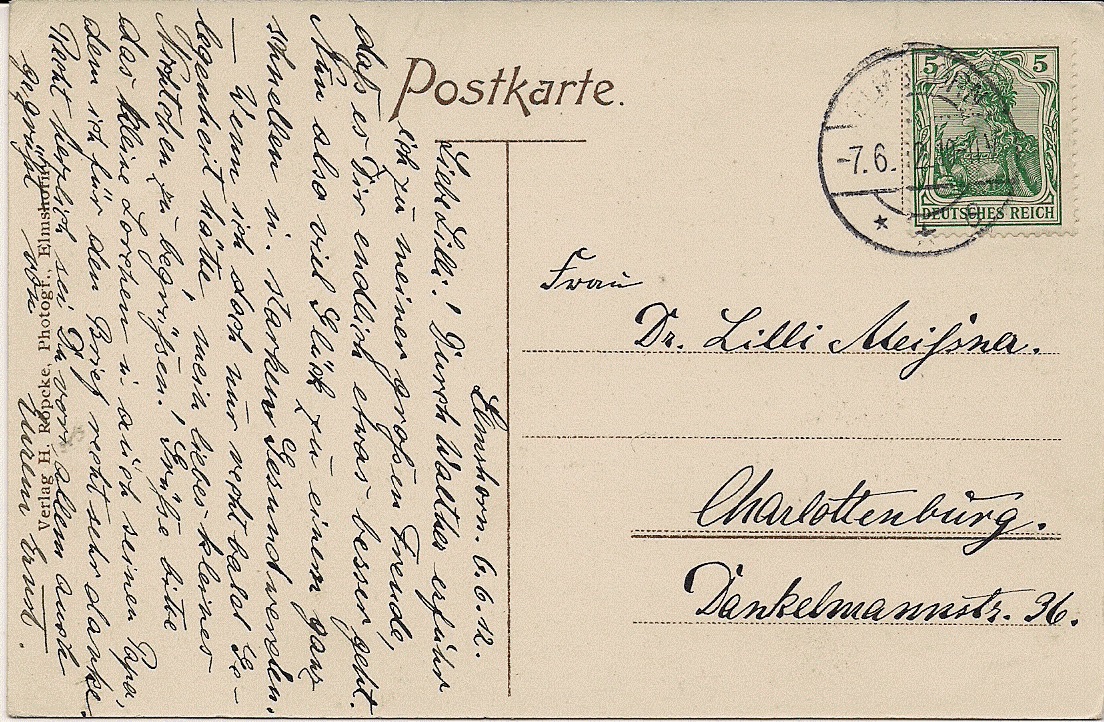 Postkarte.
5 5
DEUTSCHES REICH
-7.6.12.
Elmshorn. 6.6.12.
Liebe Lilli! Durch Walther erfuhr
ich zu meiner großen Freude,
daß es Dir endlich etwas besser geht.
Nun also viel Glück zu einem ganz
schnellen u. starken Gesundwerden.
— Wenn ich doch nur recht bald Ge-
legenheit hätte, mein liebes kleines
zu begrüßen! Grüße bitte
das kleine Lorchen u. auch seinen Papa,
dem ich für den Brief recht sehr danke.
Recht herzlich sei Du vor allem auch
gegrüßt von
Eurem Ernst.
Verlag H. Röpcke, Photogr., Elmshorn
Frau
Dr. Lilli Meißner.
Charlottenburg.
Dankelmannstr. 36.